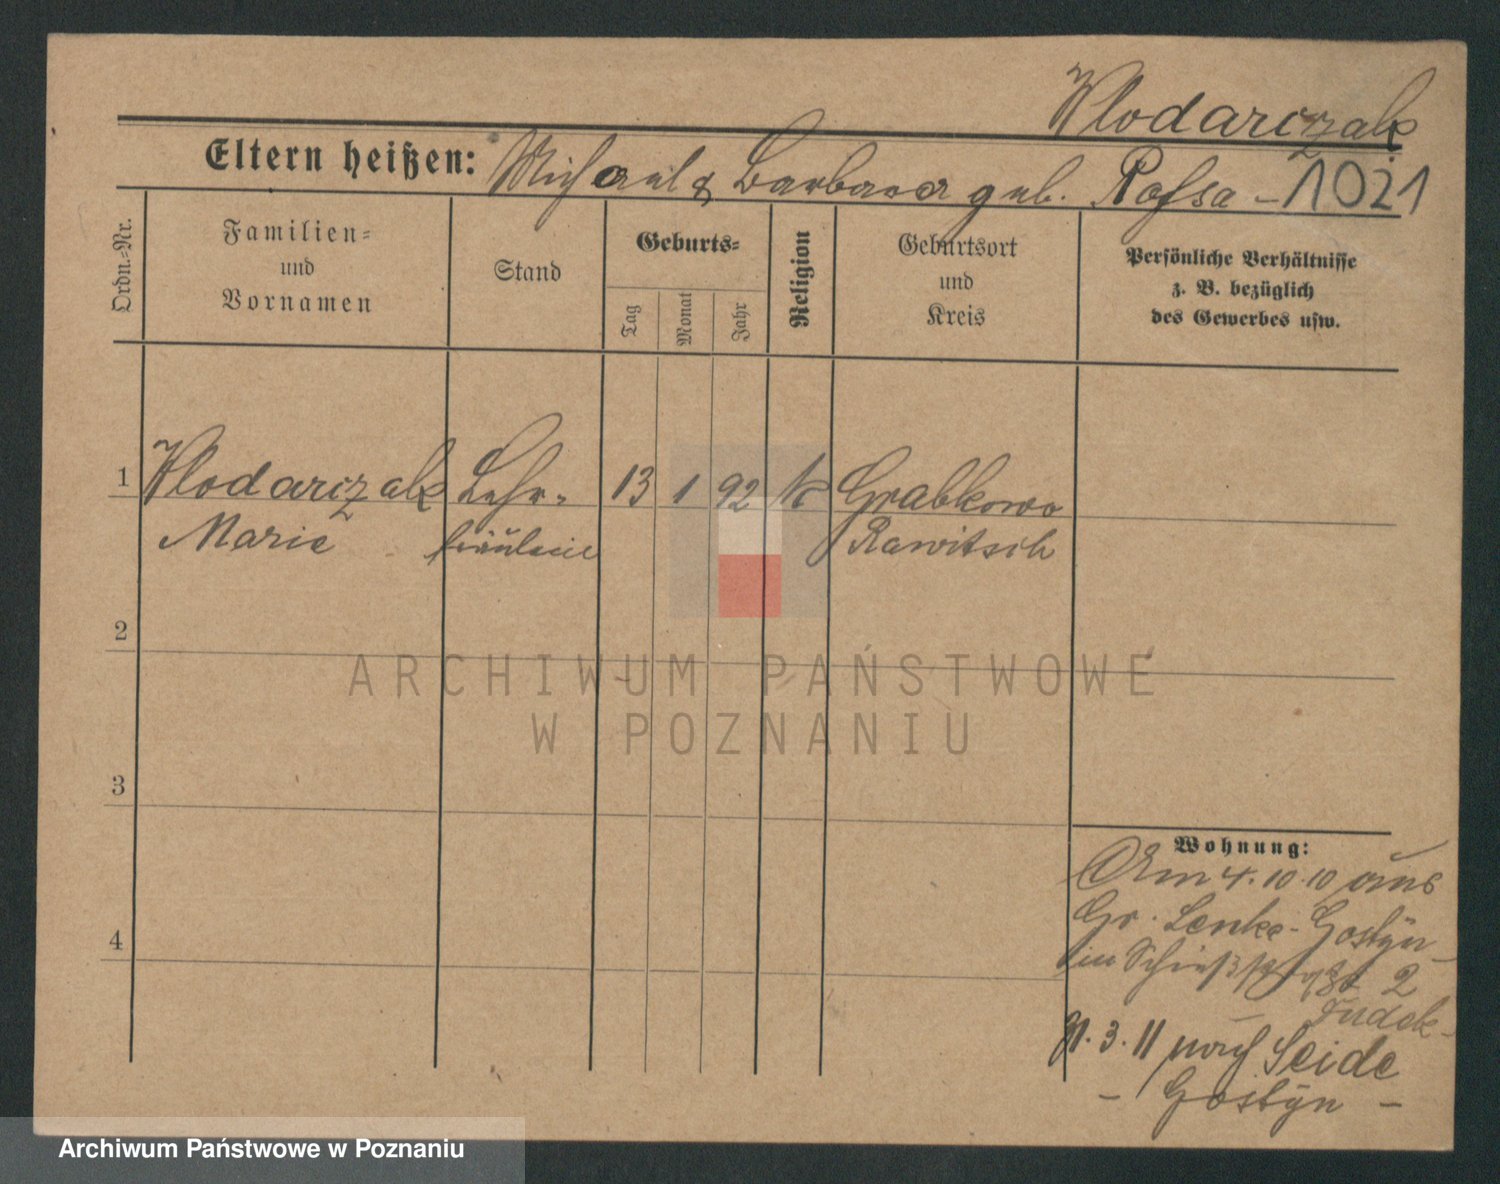 Wlodarczak
Eltern heißen: Michael & Barbara geb. Rofsa - 1021
Ordn.-Nr.
Familien-
und
Vornamen
Stand
Geburts-
Tag
Monat
Jahr
Religion
Geburtsort
und
Kreis
Persönliche Verhältnisse
z. B. bezüglich
des Gewerbes usw.
1 Wlodarczak Lehr- 13 1 92 k Grabkowo
Marie fräulein Rawitsch
2
ARCHIWUM PAŃSTWOWE
W POZNANIU
3
Wohnung:
Am 4.10.10 aus
Gr. Lenke-Gostyn
4
in 2
3.11 nach Seide
- Gostyn -
Archiwum Państwowe w Poznaniu